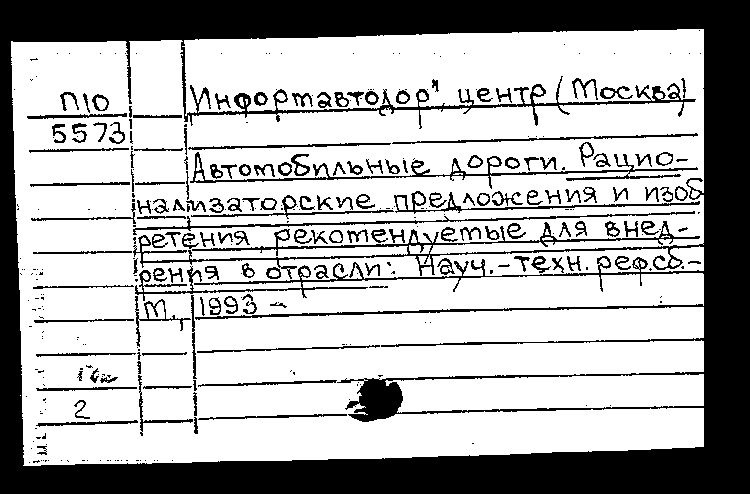 П10
Информавтодор", центр (Москва)
5573
Автомобильные дороги. Рацио-
нализаторские предложения и изоб
ретения, рекомендуемые для внед-
рения в отрасли: Науч.-техн. реф.сб.-
М., 1993 -
2